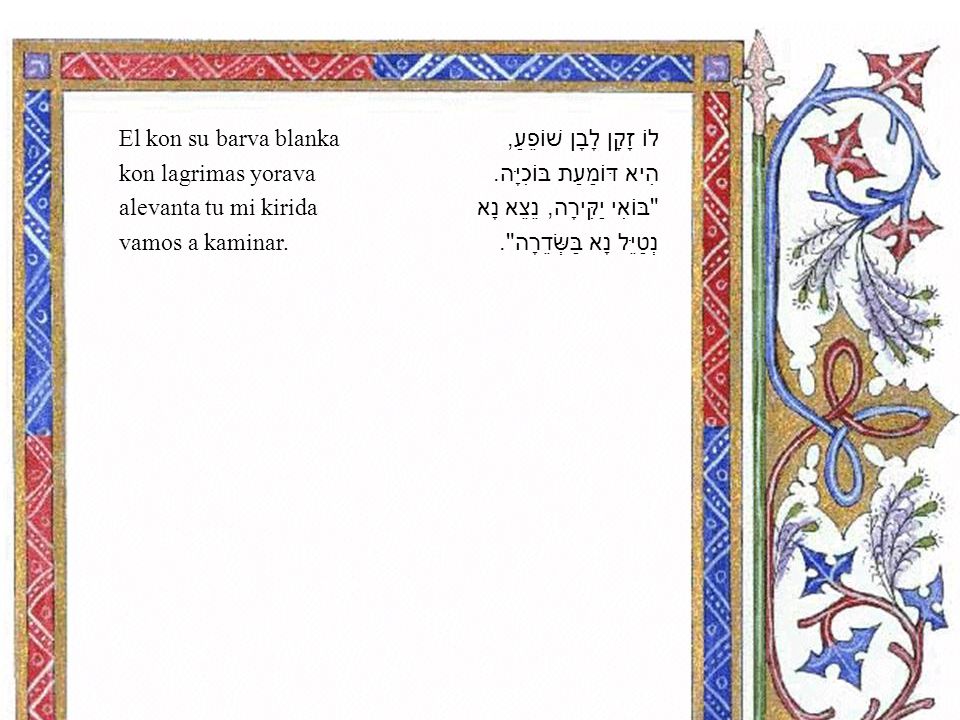 El kon su barva blanka
kon lagrimas yorava
alevanta tu mi kirida
vamos a kaminar.
לוֹ זָקָן לָבָן שׁוֹפֵעַ,
הִיא דּוֹמַעַת בּוֹכִיָּה.
"בּוֹאִי יַקִּירָה, נֵצֵא נָא
נְטַיֵּל נָא בַּשְּׂדֵרָה".